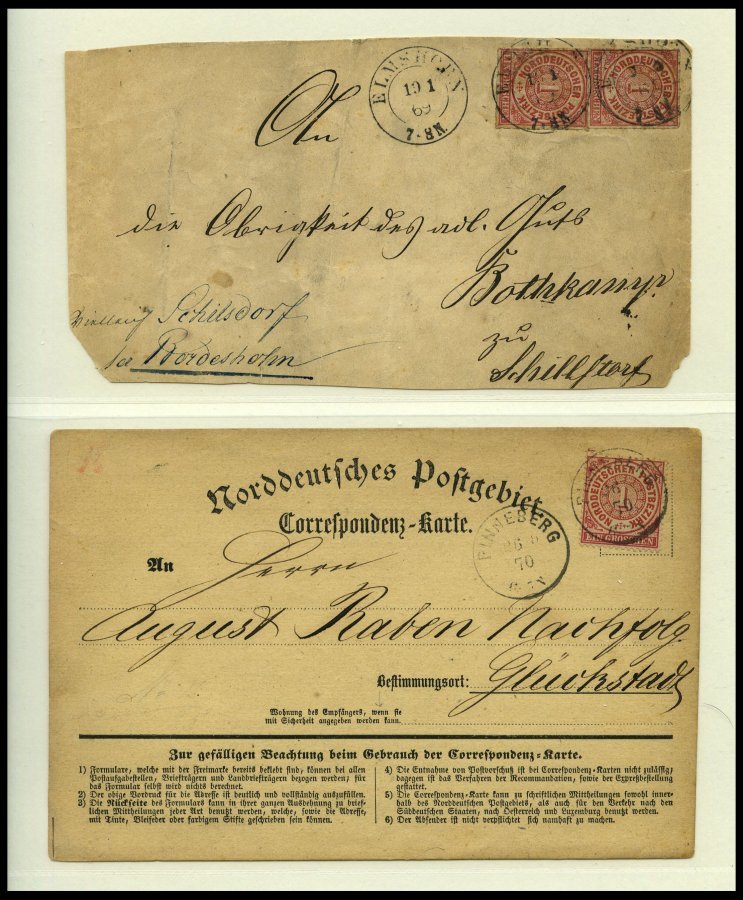 ELMSHORN
19 1
69
7-8N.
NORDDEUTSCHER POSTBEZIRK
1
NORDDEUTSCHER POSTBEZIRK
1
7-8N.
An
die Obrigkeit des adl. Guts
Bothkamp.
zu
Schillstorf
Schilsdorf
Bordesholm
Norddeutsches Postgebiet.
Correspondenz-Karte.
NORDDEUTSCHER POSTBEZIRK
1
EIN GROSCHEN
PINNEBERG
26 6
70
An Herrn
August Raben Nachfolg.
Bestimmungsort: Glückstadt
Wohnung des Empfängers, wenn sie
mit Sicherheit angegeben werden kann.
Zur gefälligen Beachtung beim Gebrauch der Correspondenz-Karte.
1) Formulare, welche mit der Freimarke bereits beklebt sind, können bei allen
Postausgabestellen, Briefträgern und Landbriefträgern bezogen werden; für
das Formular selbst wird nichts berechnet.
2) Der obige Vordruck für die Adresse ist deutlich und vollständig auszufüllen.
3) Die Rückseite des Formulars kann in ihrer ganzen Ausdehnung zu brief-
lichen Mittheilungen jeder Art benutzt werden, welche, sowie die Adresse,
mit Tinte, Bleifeder oder farbigem Stifte geschrieben sein können.
4) Die Entnahme von Postvorschuß ist bei Correspondenz-Karten nicht zulässig;
dagegen ist das Verfahren der Recommandation, sowie der Expreßbestellung
gestattet.
5) Die Correspondenz-Karte kann zu schriftlichen Mittheilungen sowohl inner-
halb des Norddeutschen Postgebiets, als auch für den Verkehr nach den
Süddeutschen Staaten, nach Oesterreich und Luxemburg benutzt werden.
6) Der Absender ist nicht verpflichtet sich namhaft zu machen.